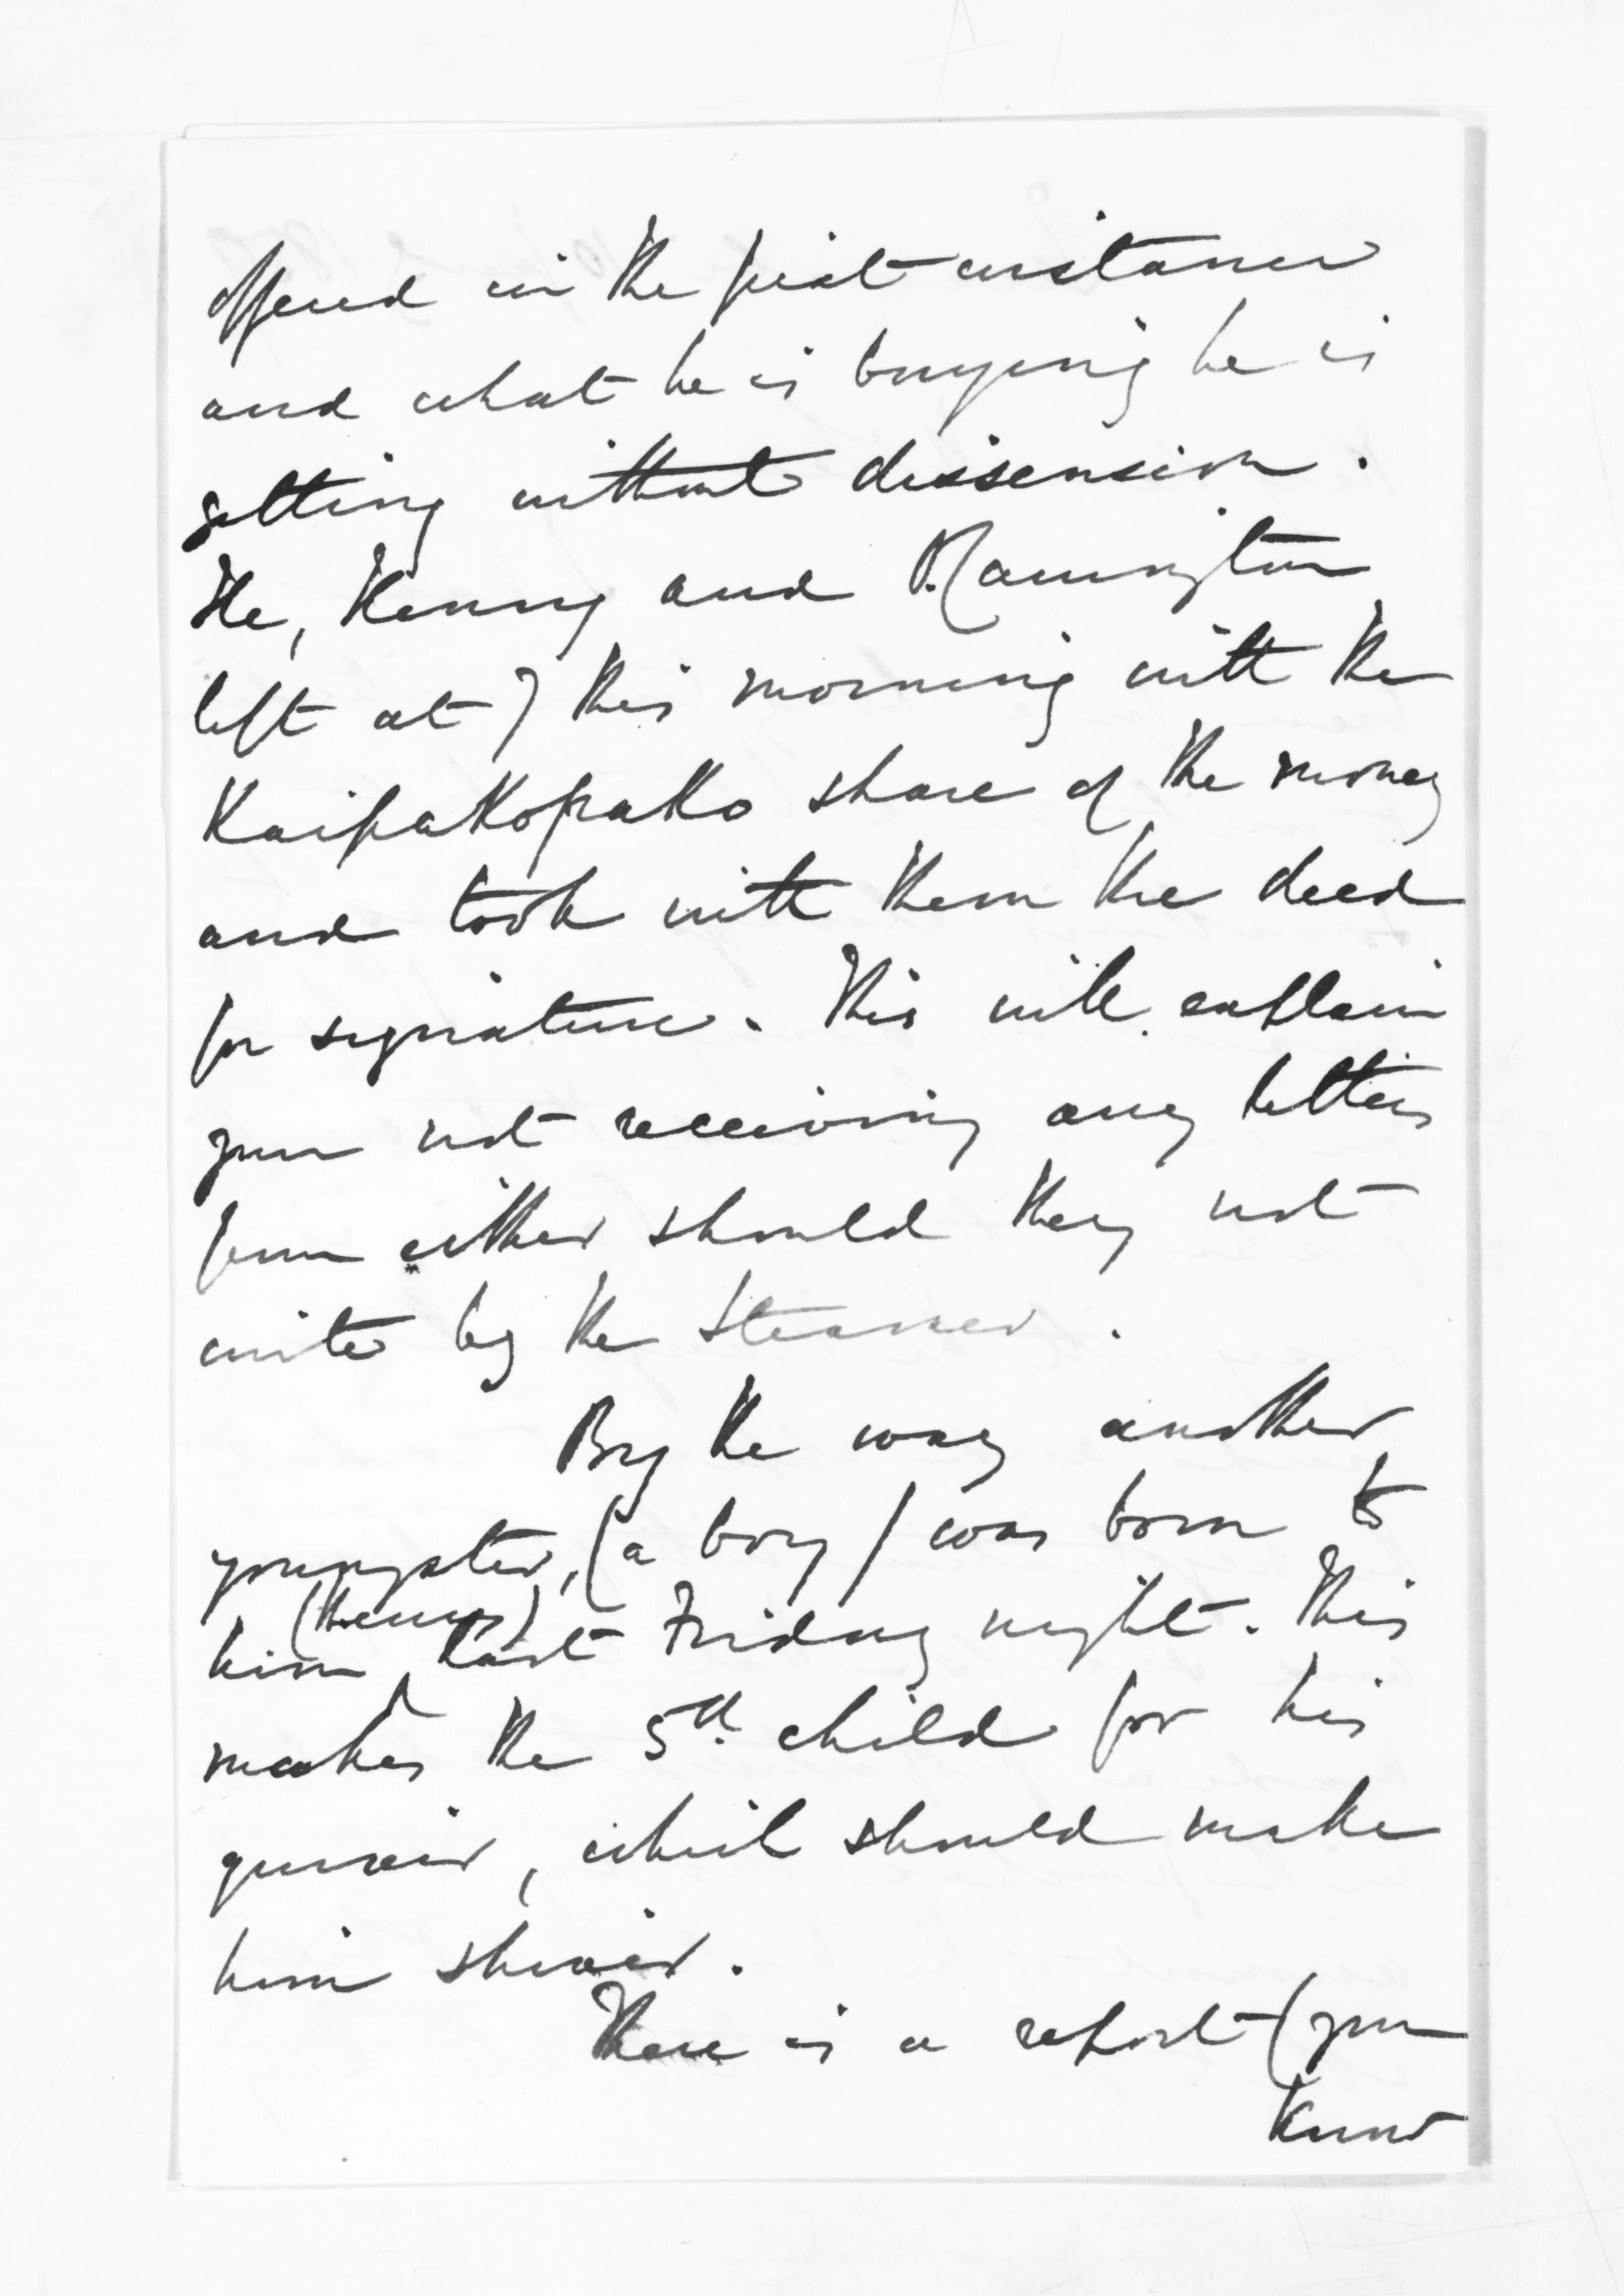 offered in the first instance
and what he is buying he is
getting without dissension.
He, Kenny and Warrington
left at 7 this morning with the
Kaipakopako share of the money
and took with them the deed
for signature. This will explain
your not receiving any letters
from either should they not
write by the Steamer.
By the way another
youngster, (a boy) was born to
(Kenny)
him last Friday night. This
makes the 5th child for his
quiver, which should make
him shiver.
There is a report (you
know